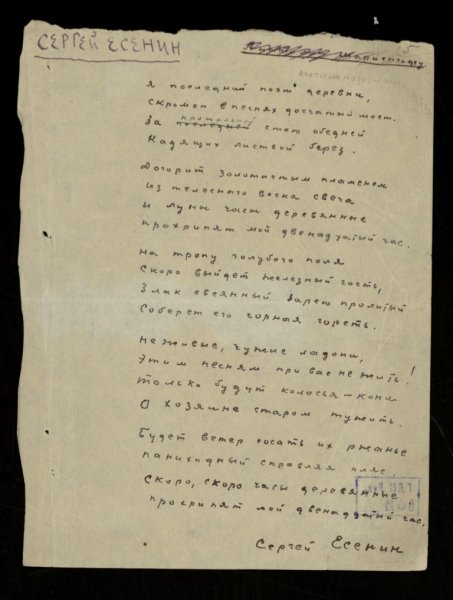 СЕРГЕЙ ЕСЕНИН
Мариенгофу
Я последний поэт деревни,
Скромен в песнях досчатый мост.
прощальной
За последной стою обедней
Кадящих листвой берез.
Догорит золотистым пламенем
Из телесного воска свеча
И луны часы деревянные
Прохрипят мой двенадцатый час.
На тропу голубого поля
Скоро выйдет железный гость,
Злак овсянный зарею пролитый
Соберет его чорная горсть.
Не живые, чужие ладони,
Этим песням при вас не жить!
Только будут колосья-кони
О хозяине старом тужить.
Будет ветер сосать их ржанье
Панихидный справляя пляс
Скоро, скоро часы деревянные
Прохрипят мой двенадцатый час.
Сергей Есенин